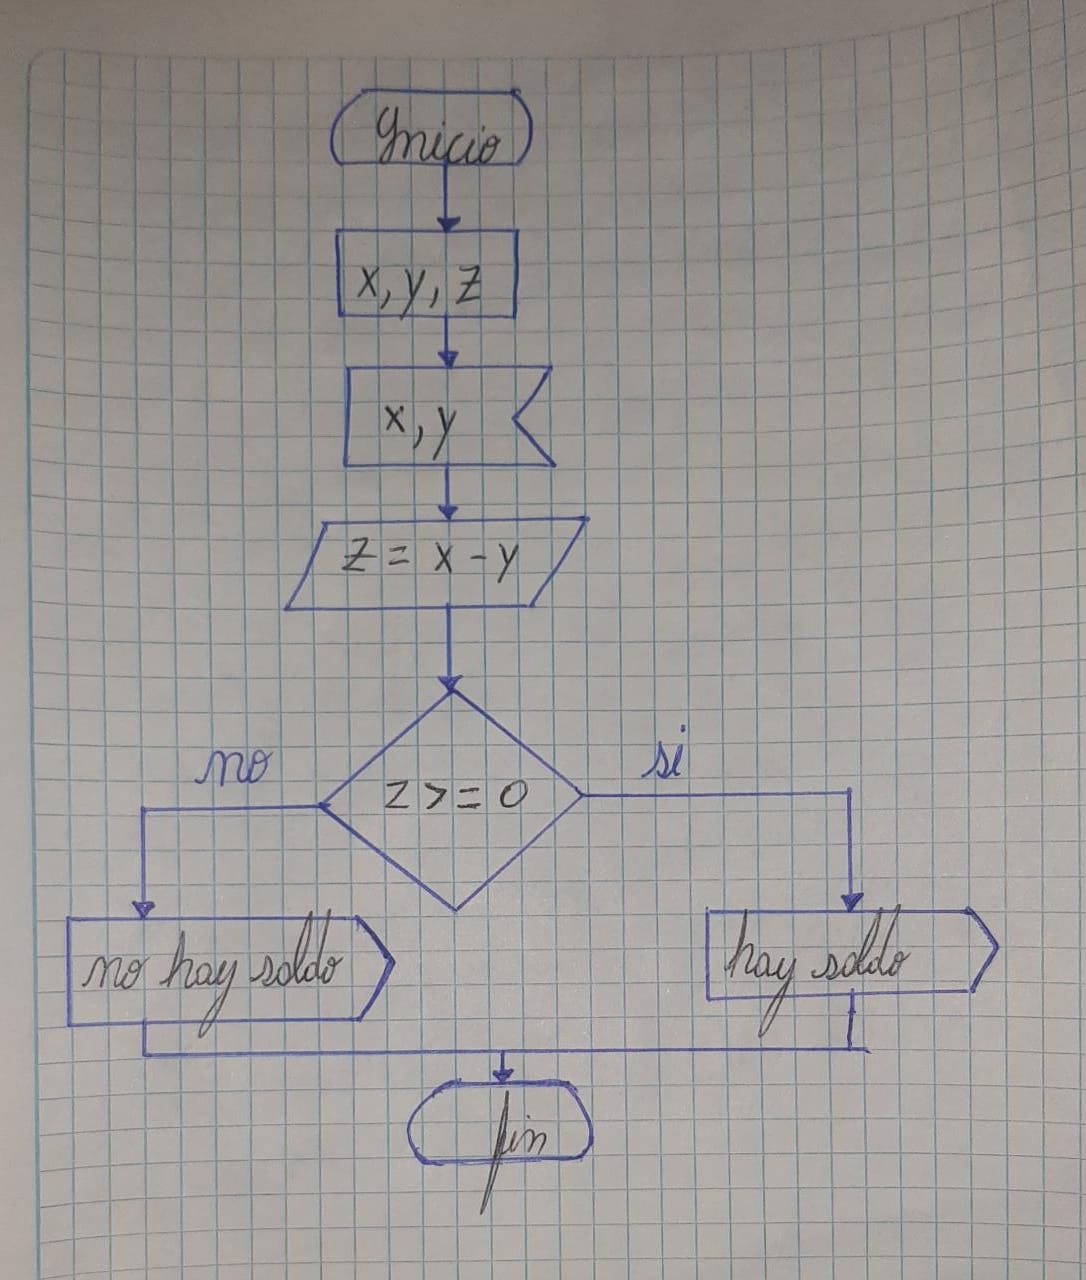 Inicio
x, y, z
x, y
z = x - y
no
si
z >= 0
no hay soldo
hay soldo
fin